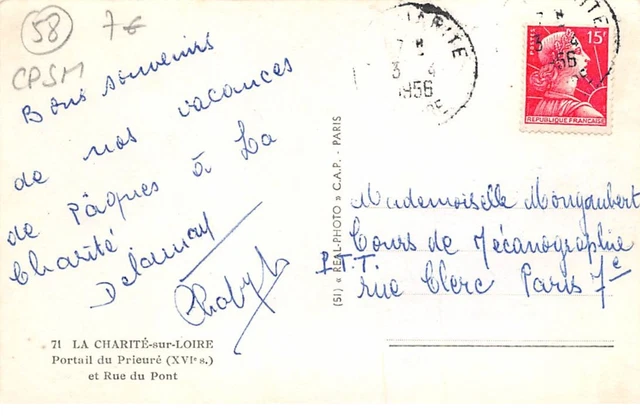 58
7€
CPSM
Bons souvenirs
de nos vacances
de Pâques à La
Charité
Delaunay
71 LA CHARITÉ-sur-LOIRE
Portail du Prieuré (XVIe s.)
et Rue du Pont
(51) « REAL-PHOTO » C.A.P. - PARIS
CHARITE
3 4
1956
POSTES 15f
REPUBLIQUE FRANÇAISE
Mademoiselle Mongaubert
Cours de Mécanographie
P.T.T.
rue Clerc Paris 7e